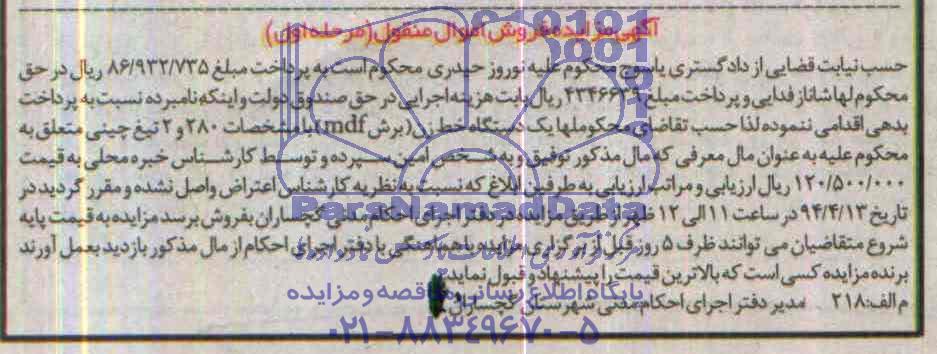 آگهی مزایده فروش اموال منقول (مرحله اول)
حسب نیابت قضایی از دادگستری یاسوج محکوم علیه نوروز حیدری محکوم است به پرداخت مبلغ ۸۶/۹۳۲/۷۳۵ ریال در حق
محکوم لها شاناز فدایی و پرداخت مبلغ ۴۳۴۶۶۳۹ ریال بابت هزینه اجرایی در حق صندوق دولت و اینکه نامبرده نسبت به پرداخت
بدهی اقدامی ننموده لذا حسب تقاضای محکوم لها یک دستگاه خط زن (برش mdf) با مشخصات ۲۸۰ و ۲ تیغ چینی متعلق به
محکوم علیه به عنوان مال معرفی که مال مذکور توقیف و به شخص امین سپرده و توسط کارشناس خبره محلی به قیمت
۱۲۰/۵۰۰/۰۰۰ ریال ارزیابی و مراتب ارزیابی به طرفین ابلاغ که نسبت به نظریه کارشناس اعتراض واصل نشده و مقرر گردید در
تاریخ ۹۴/۴/۱۳ در ساعت ۱۱ الی ۱۲ ظهر از طریق مزایده در دفتر اجرای احکام مدنی گچساران بفروش برسد مزایده به قیمت پایه
شروع متقاضیان می توانند ظرف ۵ روز قبل از برگزاری مزایده با هماهنگی با دفتر اجرای احکام از مال مذکور بازدید بعمل آورند
برنده مزایده کسی است که بالاترین قیمت را پیشنهاد و قبول نماید
م الف: ۲۱۸ مدیر دفتر اجرای احکام مدنی شهرستان گچساران
ParsNamadData
پایگاه اطلاع رسانی مناقصه و مزایده
۰۲۱-۸۸۳۴۹۶۷۰-۵